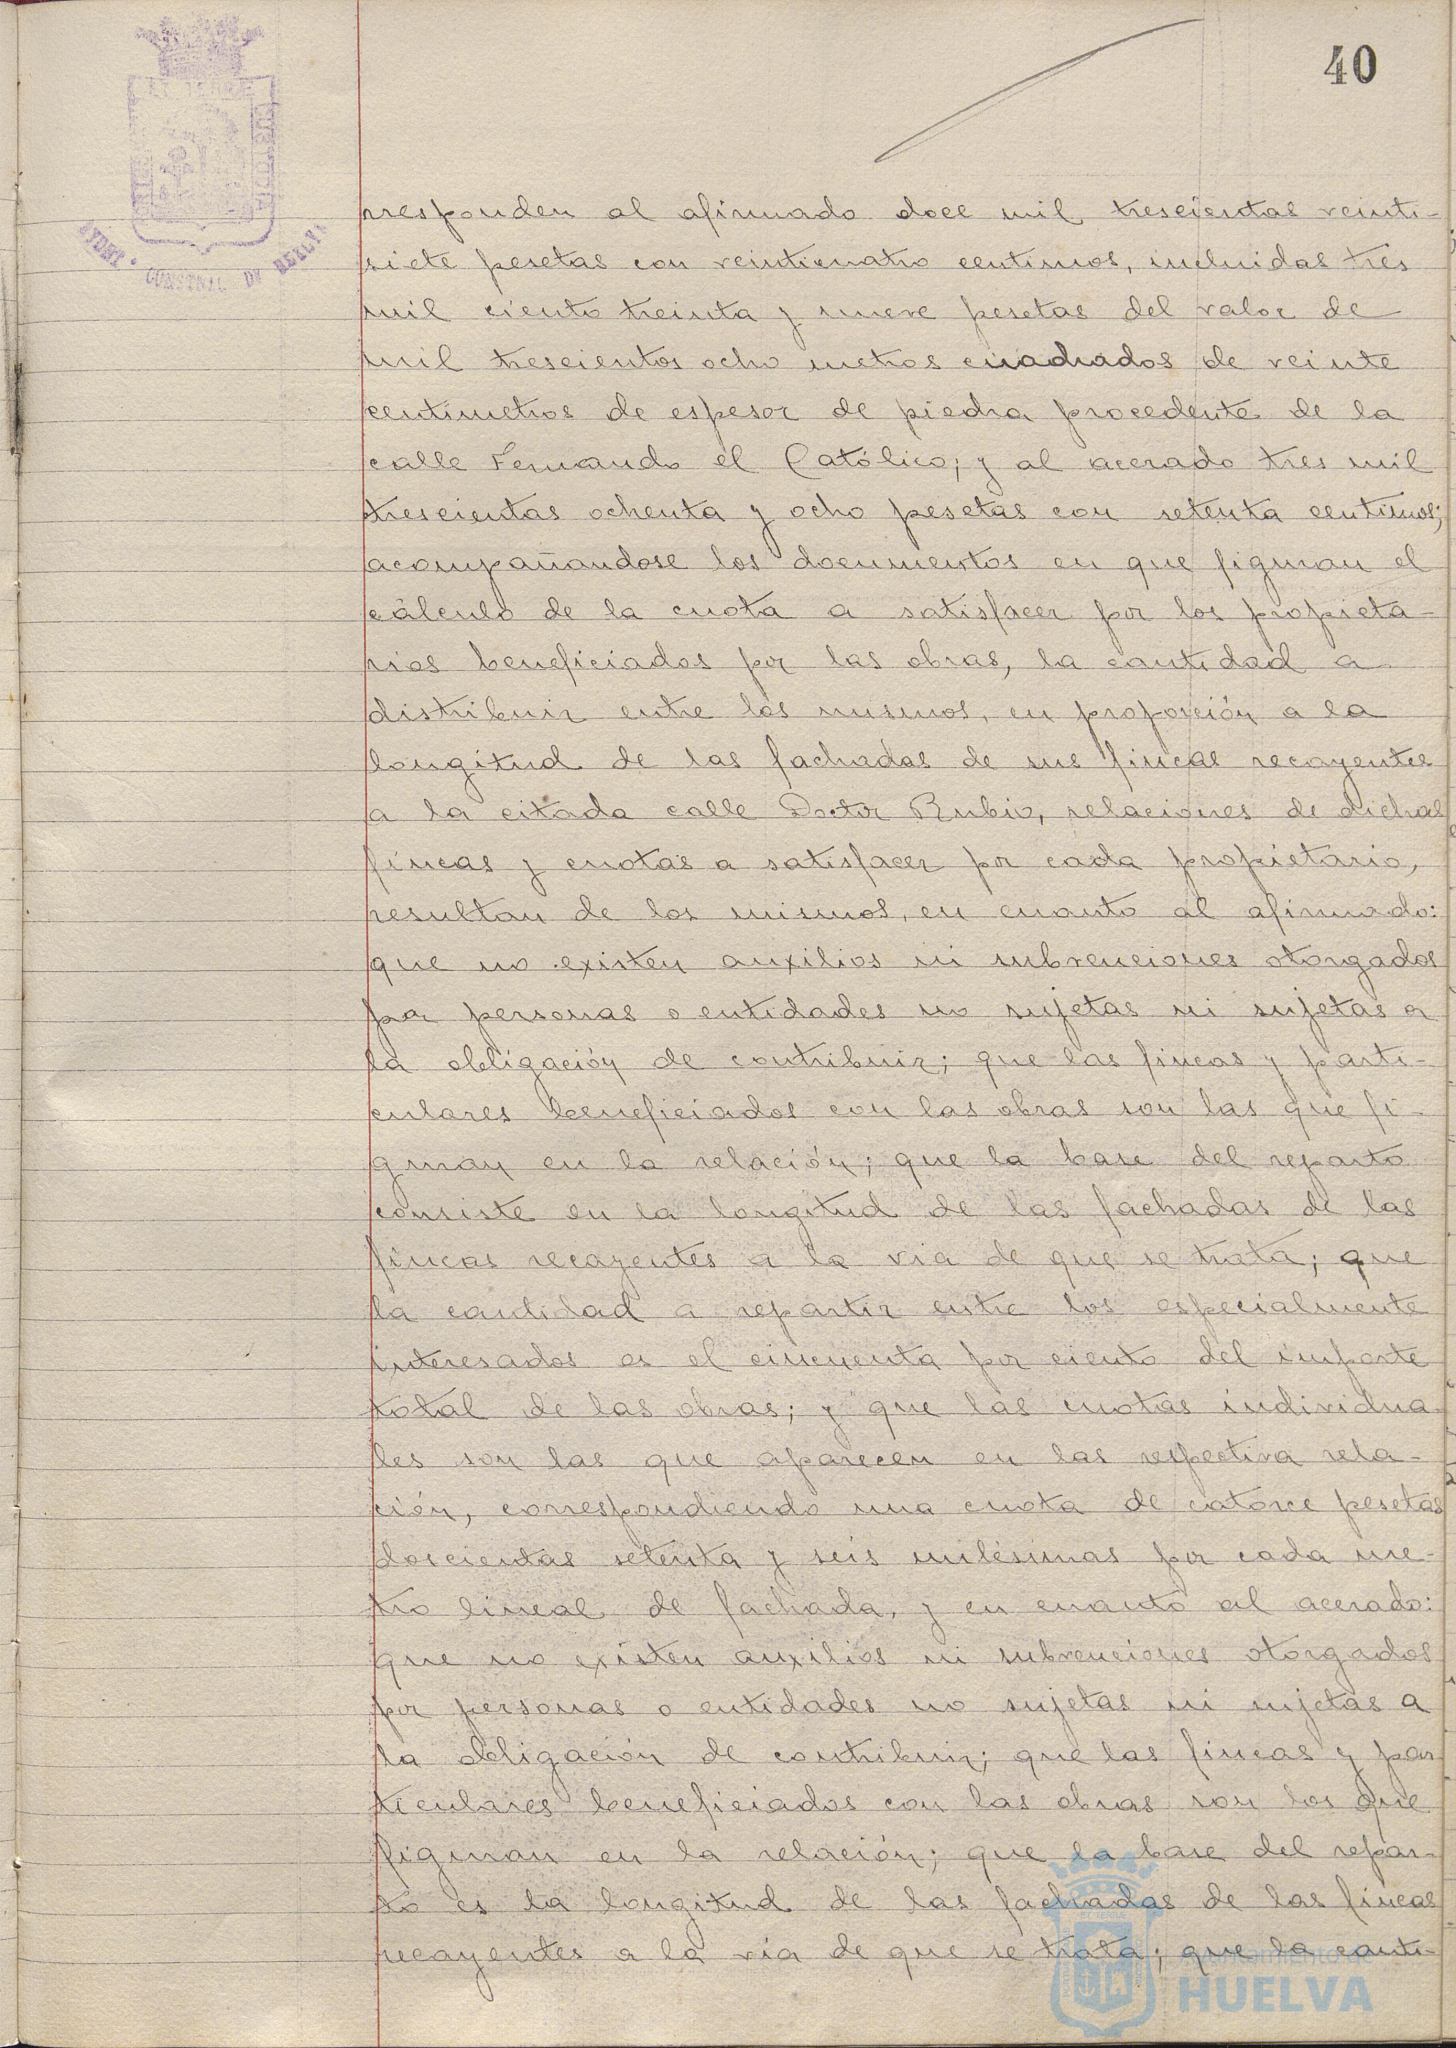 40
rresponden al afirmado doce mil trescientas veinti-
siete pesetas con veinticuatro centimos, incluidas tres
mil ciento treinta y nueve pesetas del valor de
mil trescientos ocho metros cuadrados de veinte
centímetros de espesor de piedra procedente de la
calle Fernando el Católico; y al acerado tres mil
trescientas ochenta y ocho pesetas con setenta centimos;
acompañandose los documentos en que figuran el
cálculo de la cuota a satisfacer por los propieta-
rios beneficiados por las obras, la cantidad a
distribuir entre los mismos, en proporción a la
longitud de las fachadas de sus fincas recayentes
a la citada calle Doctor Rubio, relaciones de dichas
fincas y cuotas a satisfacer por cada propietario,
resultan de los mismos, en cuanto al afirmado:
que no existen auxilios ni subvenciones otorgados
por personas o entidades no sujetas ni sujetas a
la obligación de contribuir; que las fincas y parti-
culares beneficiados con las obras son las que fi-
guran en la relación; que la base del reparto
consiste en la longitud de las fachadas de las
fincas recayentes a la via de que se trata; que
la cantidad a repartir entre los especialmente
interesados es el cincuenta por ciento del importe
total de las obras; y que las cuotas individua-
les son las que aparecen en las respectiva rela-
ción, correspondiendo una cuota de catorce pesetas
doscientas setenta y seis milésimas por cada me-
tro lineal de fachada, y en cuanto al acerado:
que no existen auxilios ni subvenciones otorgados
por personas o entidades no sujetas ni sujetas a
la obligación de contribuir; que las fincas y par
ticulares beneficiados con las obras son los que
figuran en la relación; que la base del repar-
to es la longitud de las fachadas de las fincas
recayentes a la vía de que se trata; que la canti-
Ayuntamiento de
HUELVA